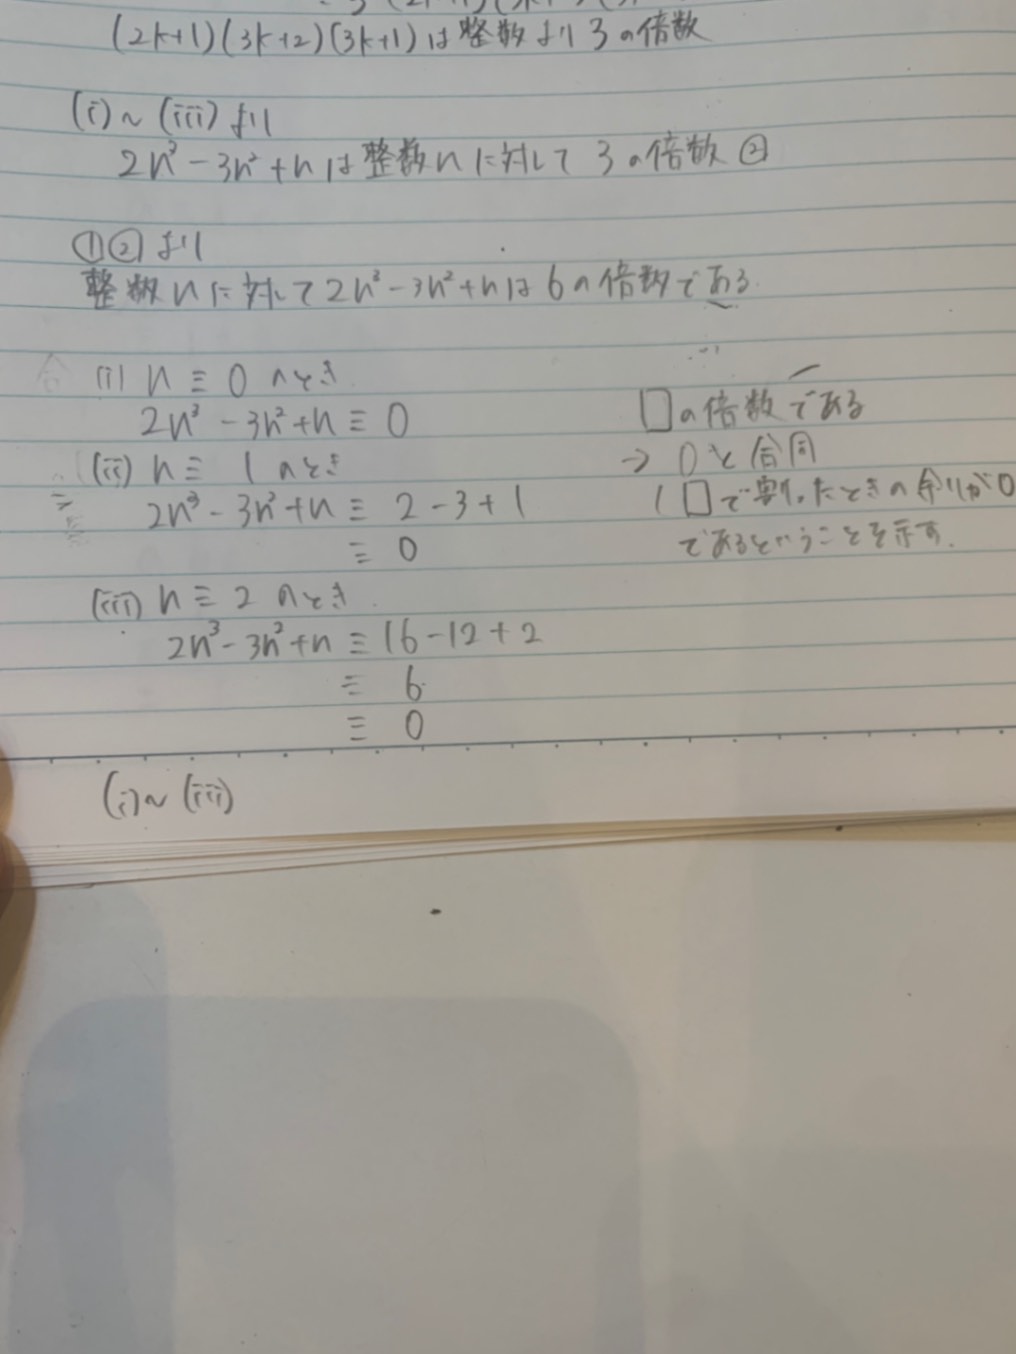 (2k+1)(3k+2)(3k+1)は整数より3の倍数
(i)~(iii)より
2n³-3n²+nは整数nに対して3の倍数②
①②より
整数nに対して2n³-3n²+nは6の倍数である.
合
(i) n≡0のとき
2n³-3n²+n≡0
(ii) n≡1のとき
2n³-3n²+n≡2-3+1
≡0
(iii) n≡2のとき
2n³-3n²+n≡16-12+2
≡6
≡0
(i)~(iii)
□の倍数である
→0と合同
(□で割ったときの余りが0
であるということを示す.